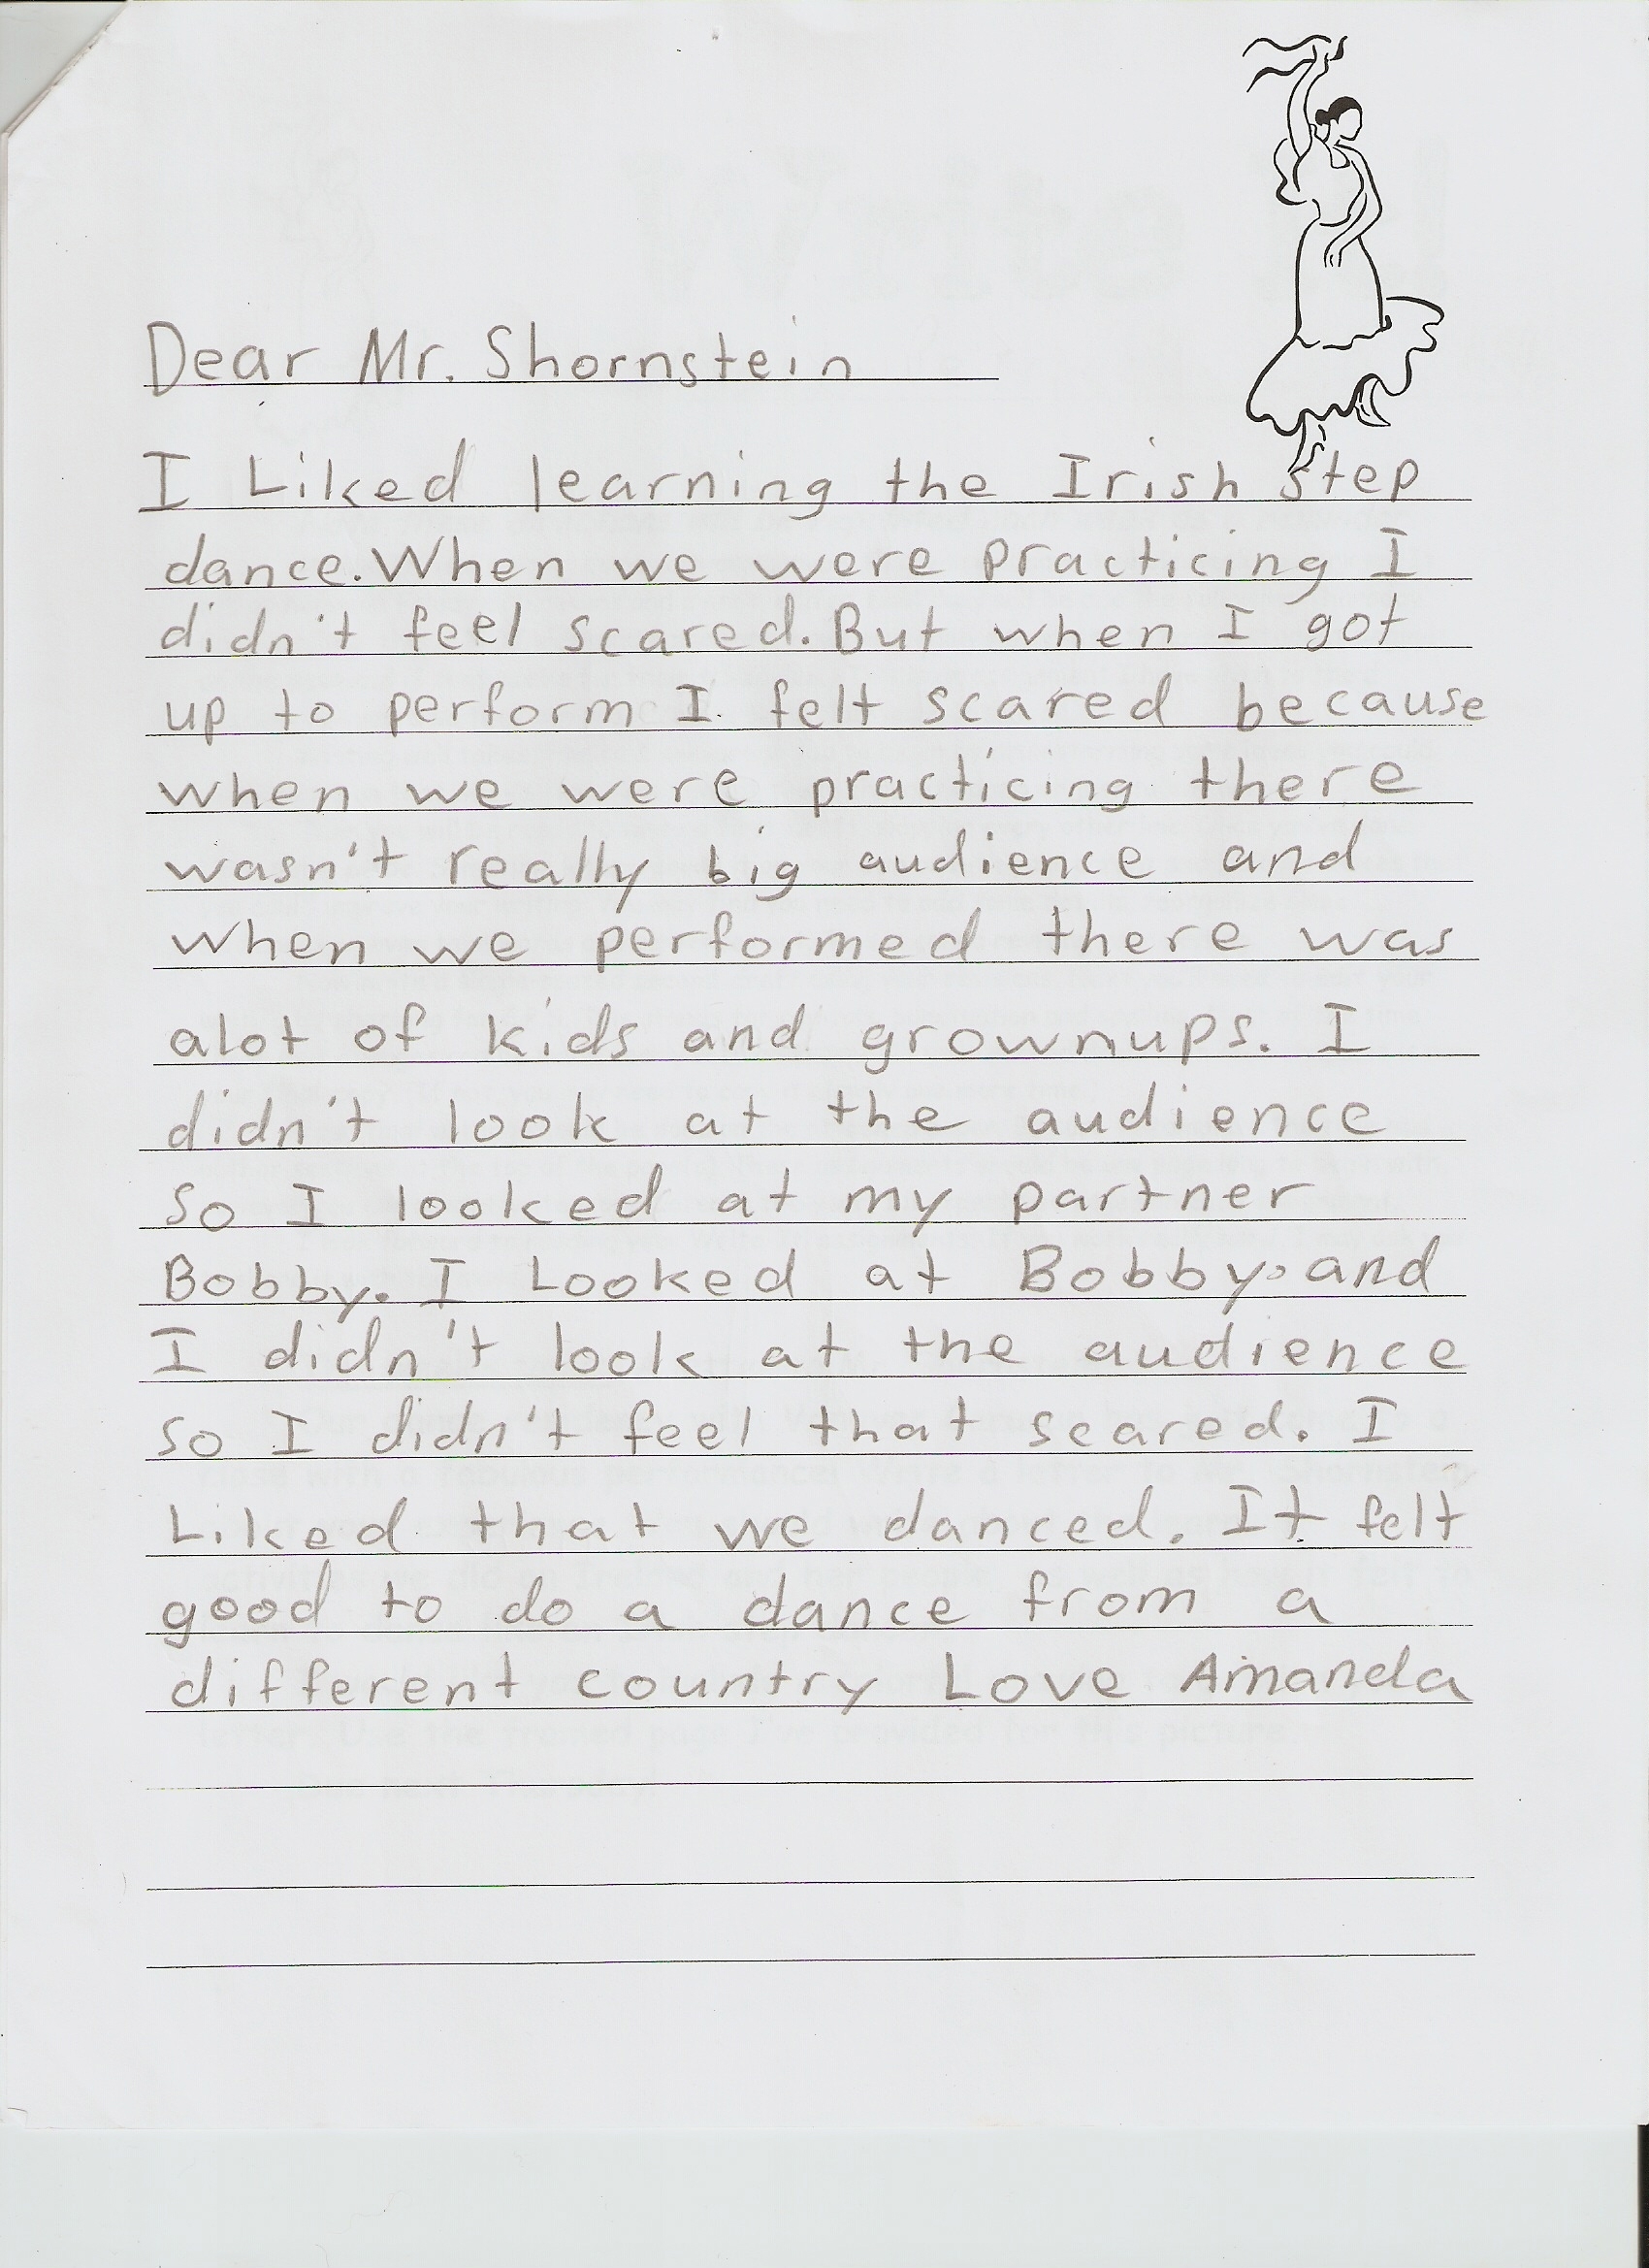 Dear Mr. Shornstein
I Liked learning the Irish step
dance. When we were practicing I
didn't feel scared. But when I got
up to perform I felt scared because
when we were practicing there
wasn't really big audience and
when we performed there was
alot of kids and grownups. I
didn't look at the audience
so I looked at my partner
Bobby. I Looked at Bobby and
I didn't look at the audience
so I didn't feel that scared. I
Liked that we danced. It felt
good to do a dance from a
different country Love Amanda